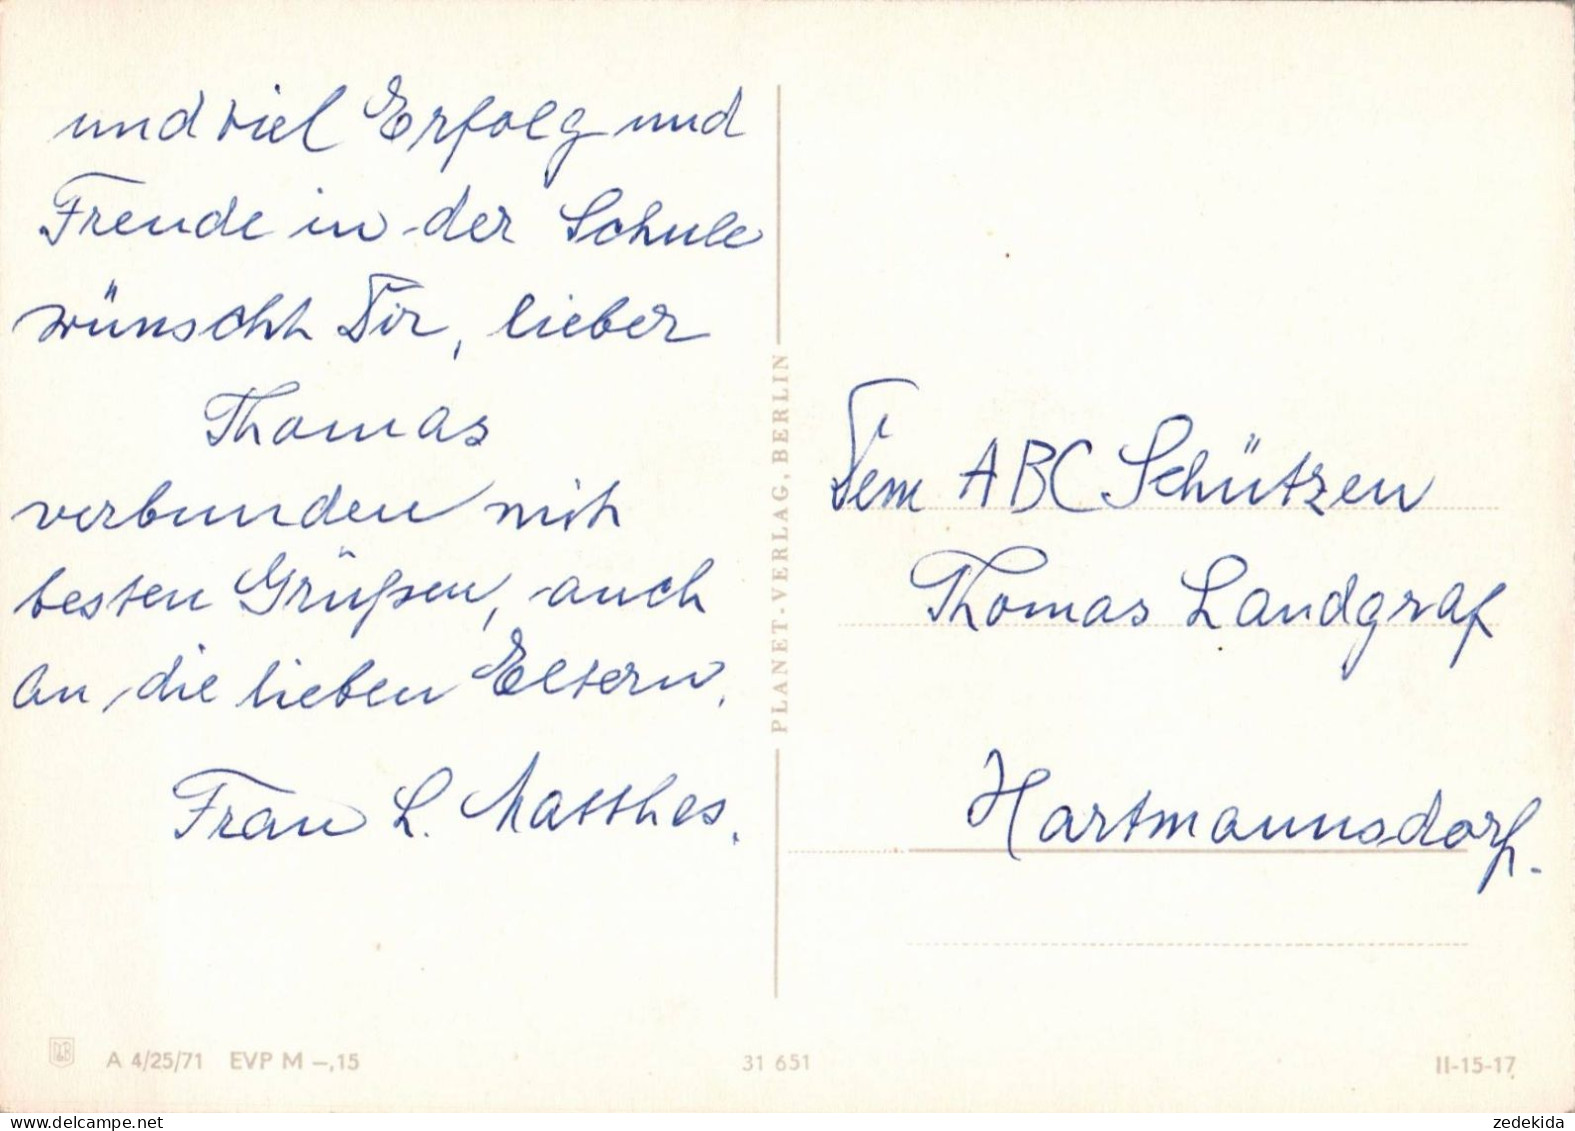 und viel Erfolg und
Freude in der Schule
wünscht Dir, lieber
Thomas
verbunden mit
besten Grüßen, auch
an die lieben Eltern.
Frau L. Matthes.
PLANET-VERLAG, BERLIN
Dem ABC Schützen
Thomas Landgraf
Hartmannsdorf.
A 4/25/71 EVP M –,15
31 651
II-15-17
zedekida